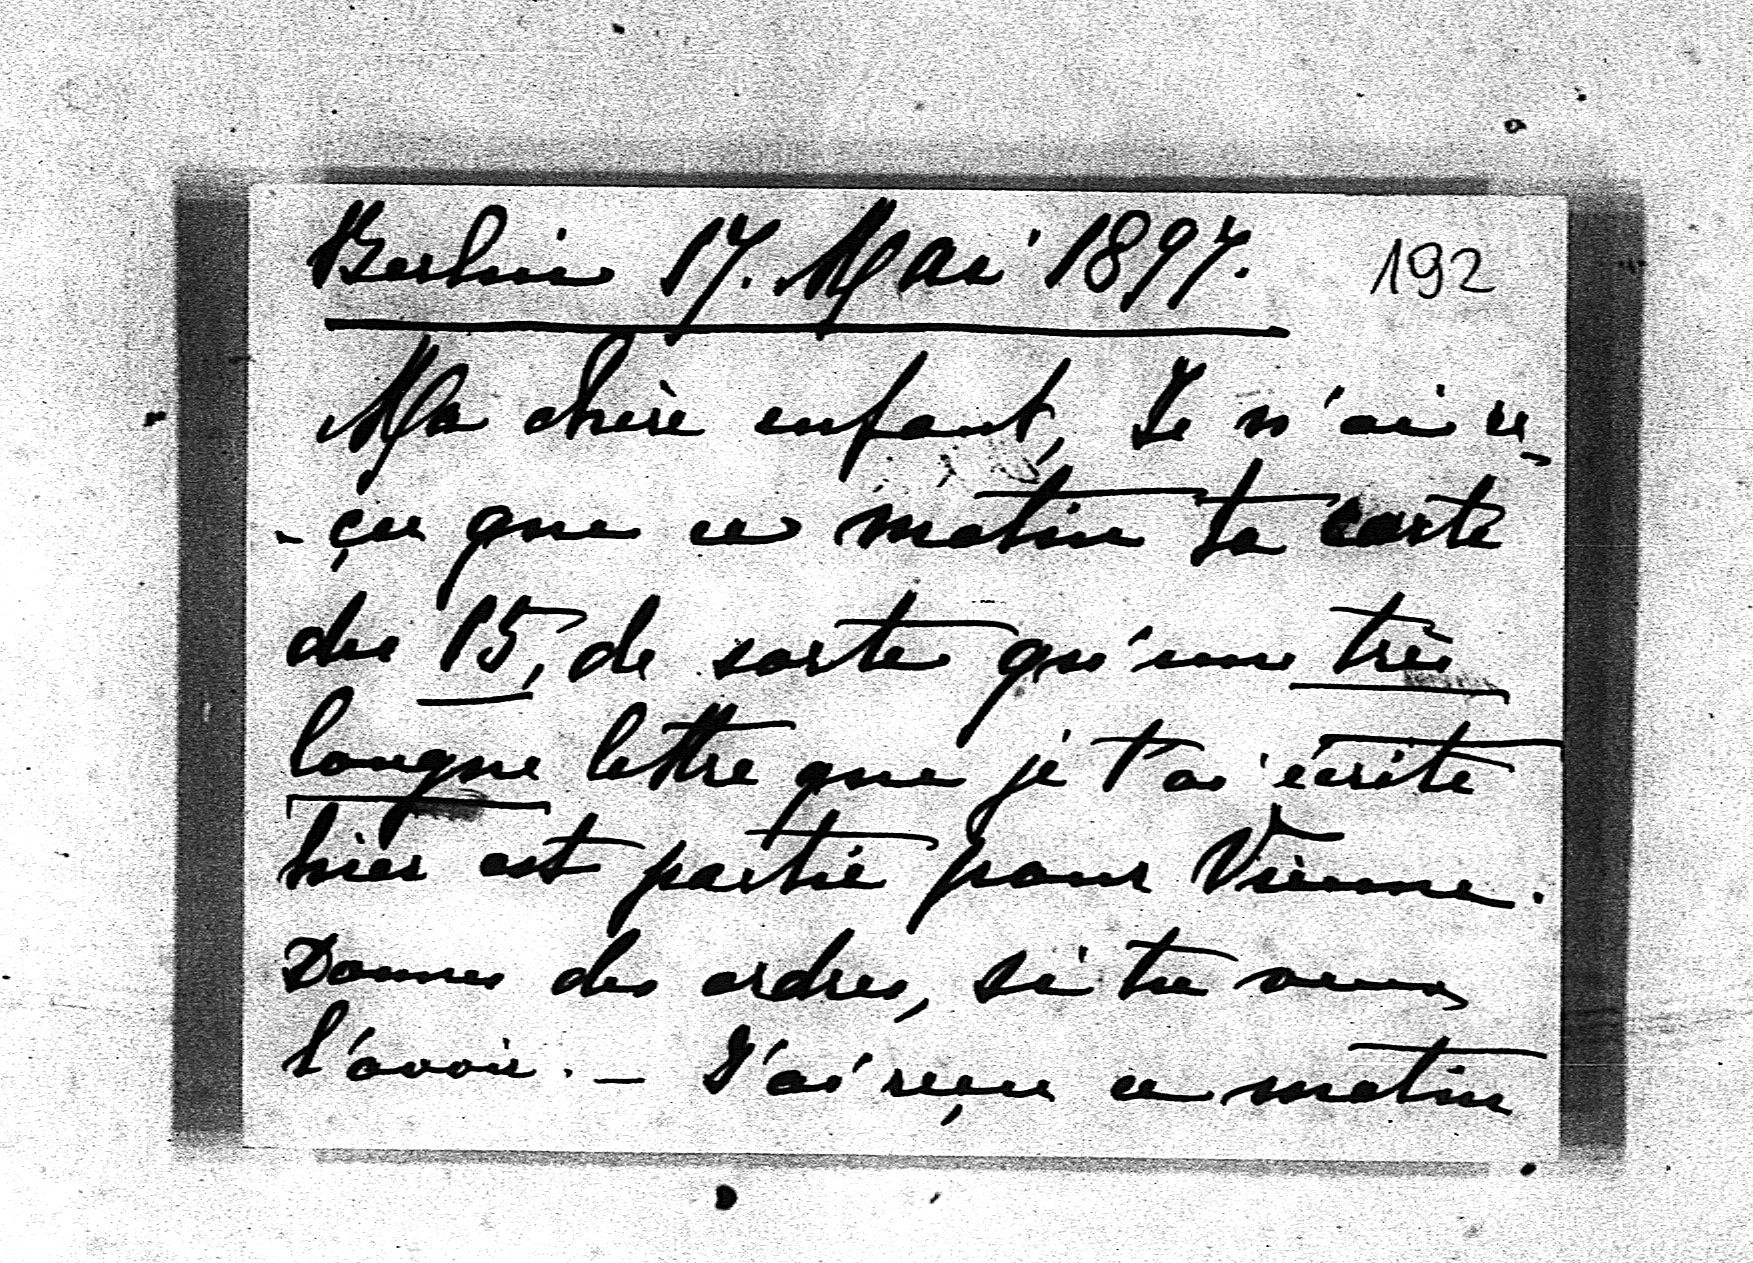 Berlin 17. Mai 1897. 192
Ma chère enfant, Je n'ai re-
-çu que ce matin ta carte
du 15, de sorte qu'une très
longue lettre que je t'ai écrite
hier est partie pour Vienne.
Donnes des ordres, si tu veux
l'avoir. — J'ai reçu ce matin